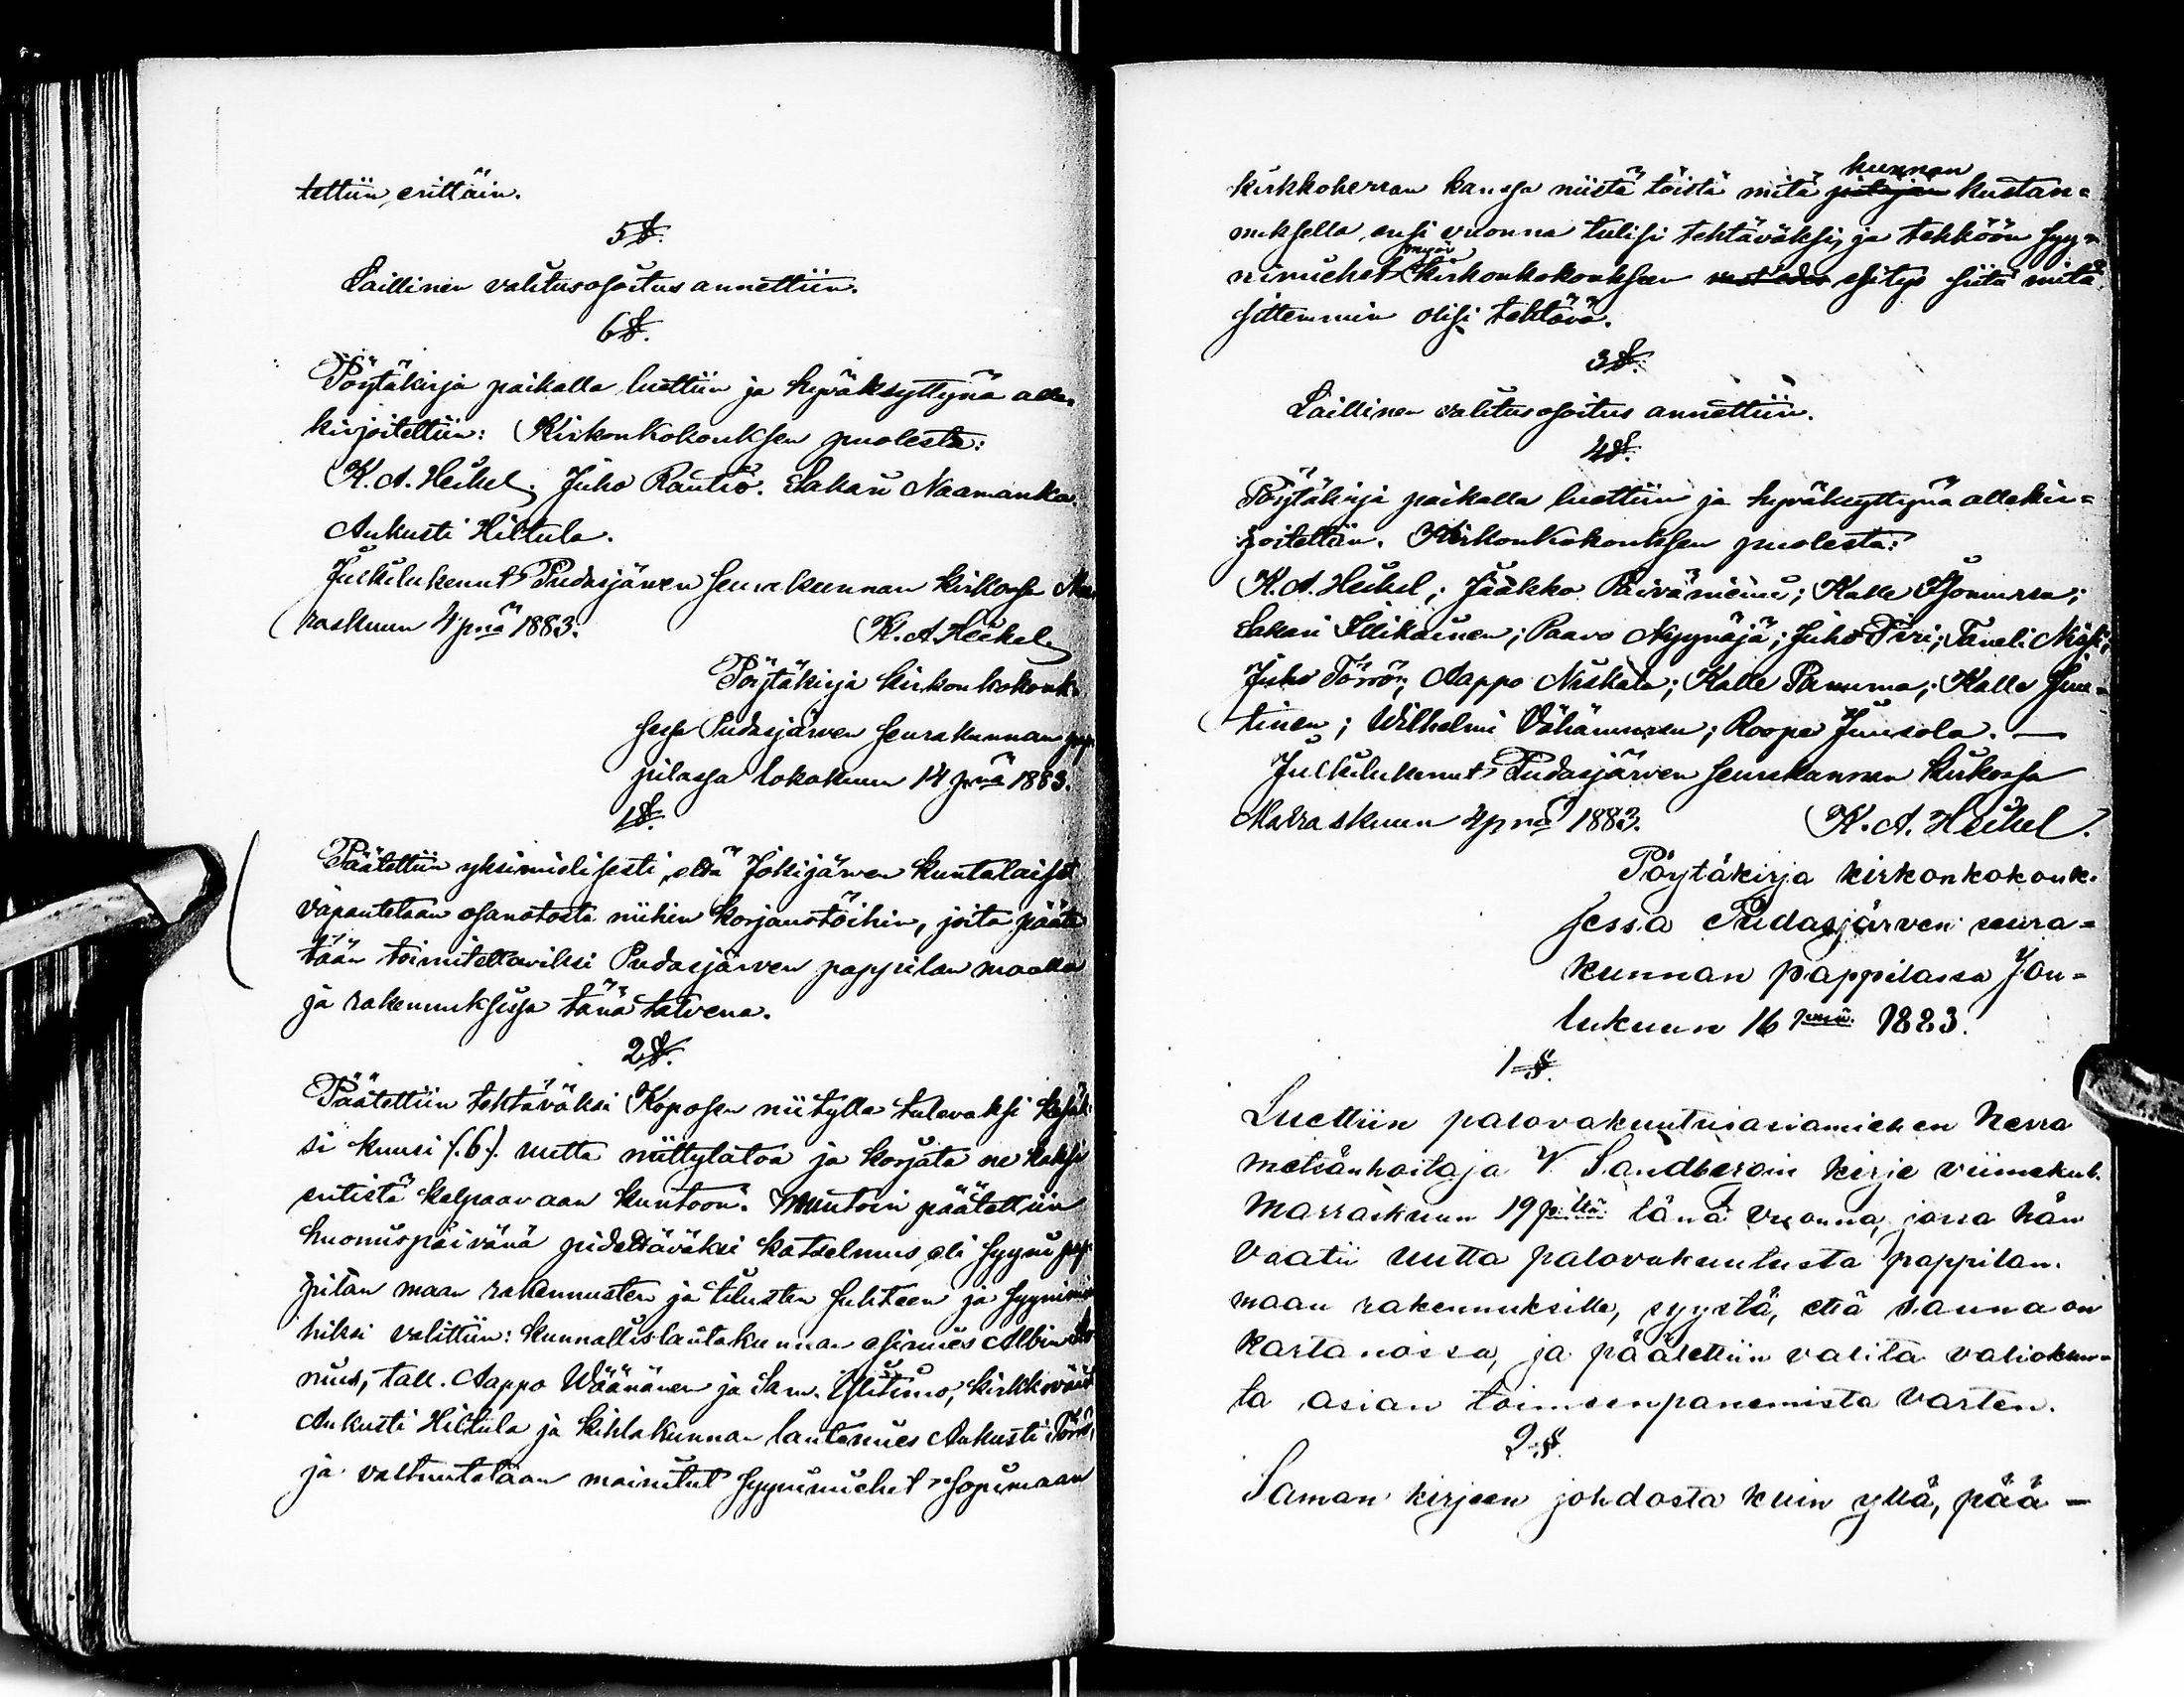 tettiin erittäin.
5 §.
Laillinen valitusosoitus annettiin.
6 §.
Pöytäkirja paikalla luettiin ja hyväksyttynä alle-
kirjoitettiin: Kirkonkokouksen puolesta:
K. A. Heikel. Juho Rautio. Sakari Naamanka.
Aukusti Hiltula.
Julkilukenut Pudasjärven seurakunnan kirkossa Mar
raskuun 4 pnä 1883. K. A. Heikel
Pöytäkirja kirkonkokouk-
sessa Pudasjärven seurakunnan pap
pilassa lokakuun 14 pnä 1883.
1 §.
Päätettiin yksimielisesti, että Jokijärven kuntalaiset
vapautetaan osanotosta niihin korjaustöihin, joita pääte
tään toimitettaviksi Pudasjärven pappilan maalla
ja rakennuksissa tänä talvena.
2 §.
Päätettiin tehtäväksi Koposen niitylle tulevaksi kesäk
si kuusi (6) uutta niittylatoa ja korjata ne kaksi
entistä kelpaavaan kuntoon. Muutoin päätettiin
huomispäivänä pidettäväksi katselmus eli syyni pap
pilan maan rakennusten ja tilusten suhteen ja syynimie
hiksi valittiin: kunnallislautakunnan esimies Albin
nius, tall. Aappo Wäänänen ja Sam. Ylitimo, kirkkoväärt
Aukusti Hiltula ja kihlakunnan lautamies Aukusti Törrö,
ja valtuutetaan mainitut syynimiehet sopimaan
kirkkoherran kanssa niistä töistä mitä kunnan
pitäjän kustan-
nuksella ensi vuonna tulisi tehtäväksi, ja tehköön syy-
nimiehet myös kirkonkokouksen esitys siitä mitä
sittemmin olisi tehtävä.
3 §.
Laillinen valitusosoitus annettiin.
4 §.
Pöytäkirja paikalla luettiin ja hyväksyttynä allekir-
joitettiin. Kirkonkokouksen puolesta:
K. A. Heikel; Jaakko Päiväniemi; Kalle Isomursu;
Sakari Illikainen; Paavo Nyynäjä; Juho Piri; Taneli
Juho Törrö; Aappo Niskala; Kalle Panuma; Kalle Juu-
tinen; Wilhelmi Vähämursu; Roope Juusola. —
Julkilukenut Pudasjärven seurakunnan kirkossa
Marraskuun 4 pnä 1883. K. A. Heikel.
Pöytäkirja kirkonkokouk-
sessa Pudasjärven seura-
kunnan pappilassa Jou-
lukuun 16 pnä. 1883.
1 §.
Luettiin palovakuutusasiamiehen herra
metsänhoitaja V Sandbergin kirje viimekul.
Marraskuun 19 p:ltä tänä vuonna, jossa hän
vaatii uutta palovakuutusta pappilan.
maan rakennuksille, syystä, että sauna on
kartanossa, ja päätettiin valita valiokun-
ta asian toimeenpanemista varten.
2 §.
Saman kirjeen johdosta kuin yllä, pää-